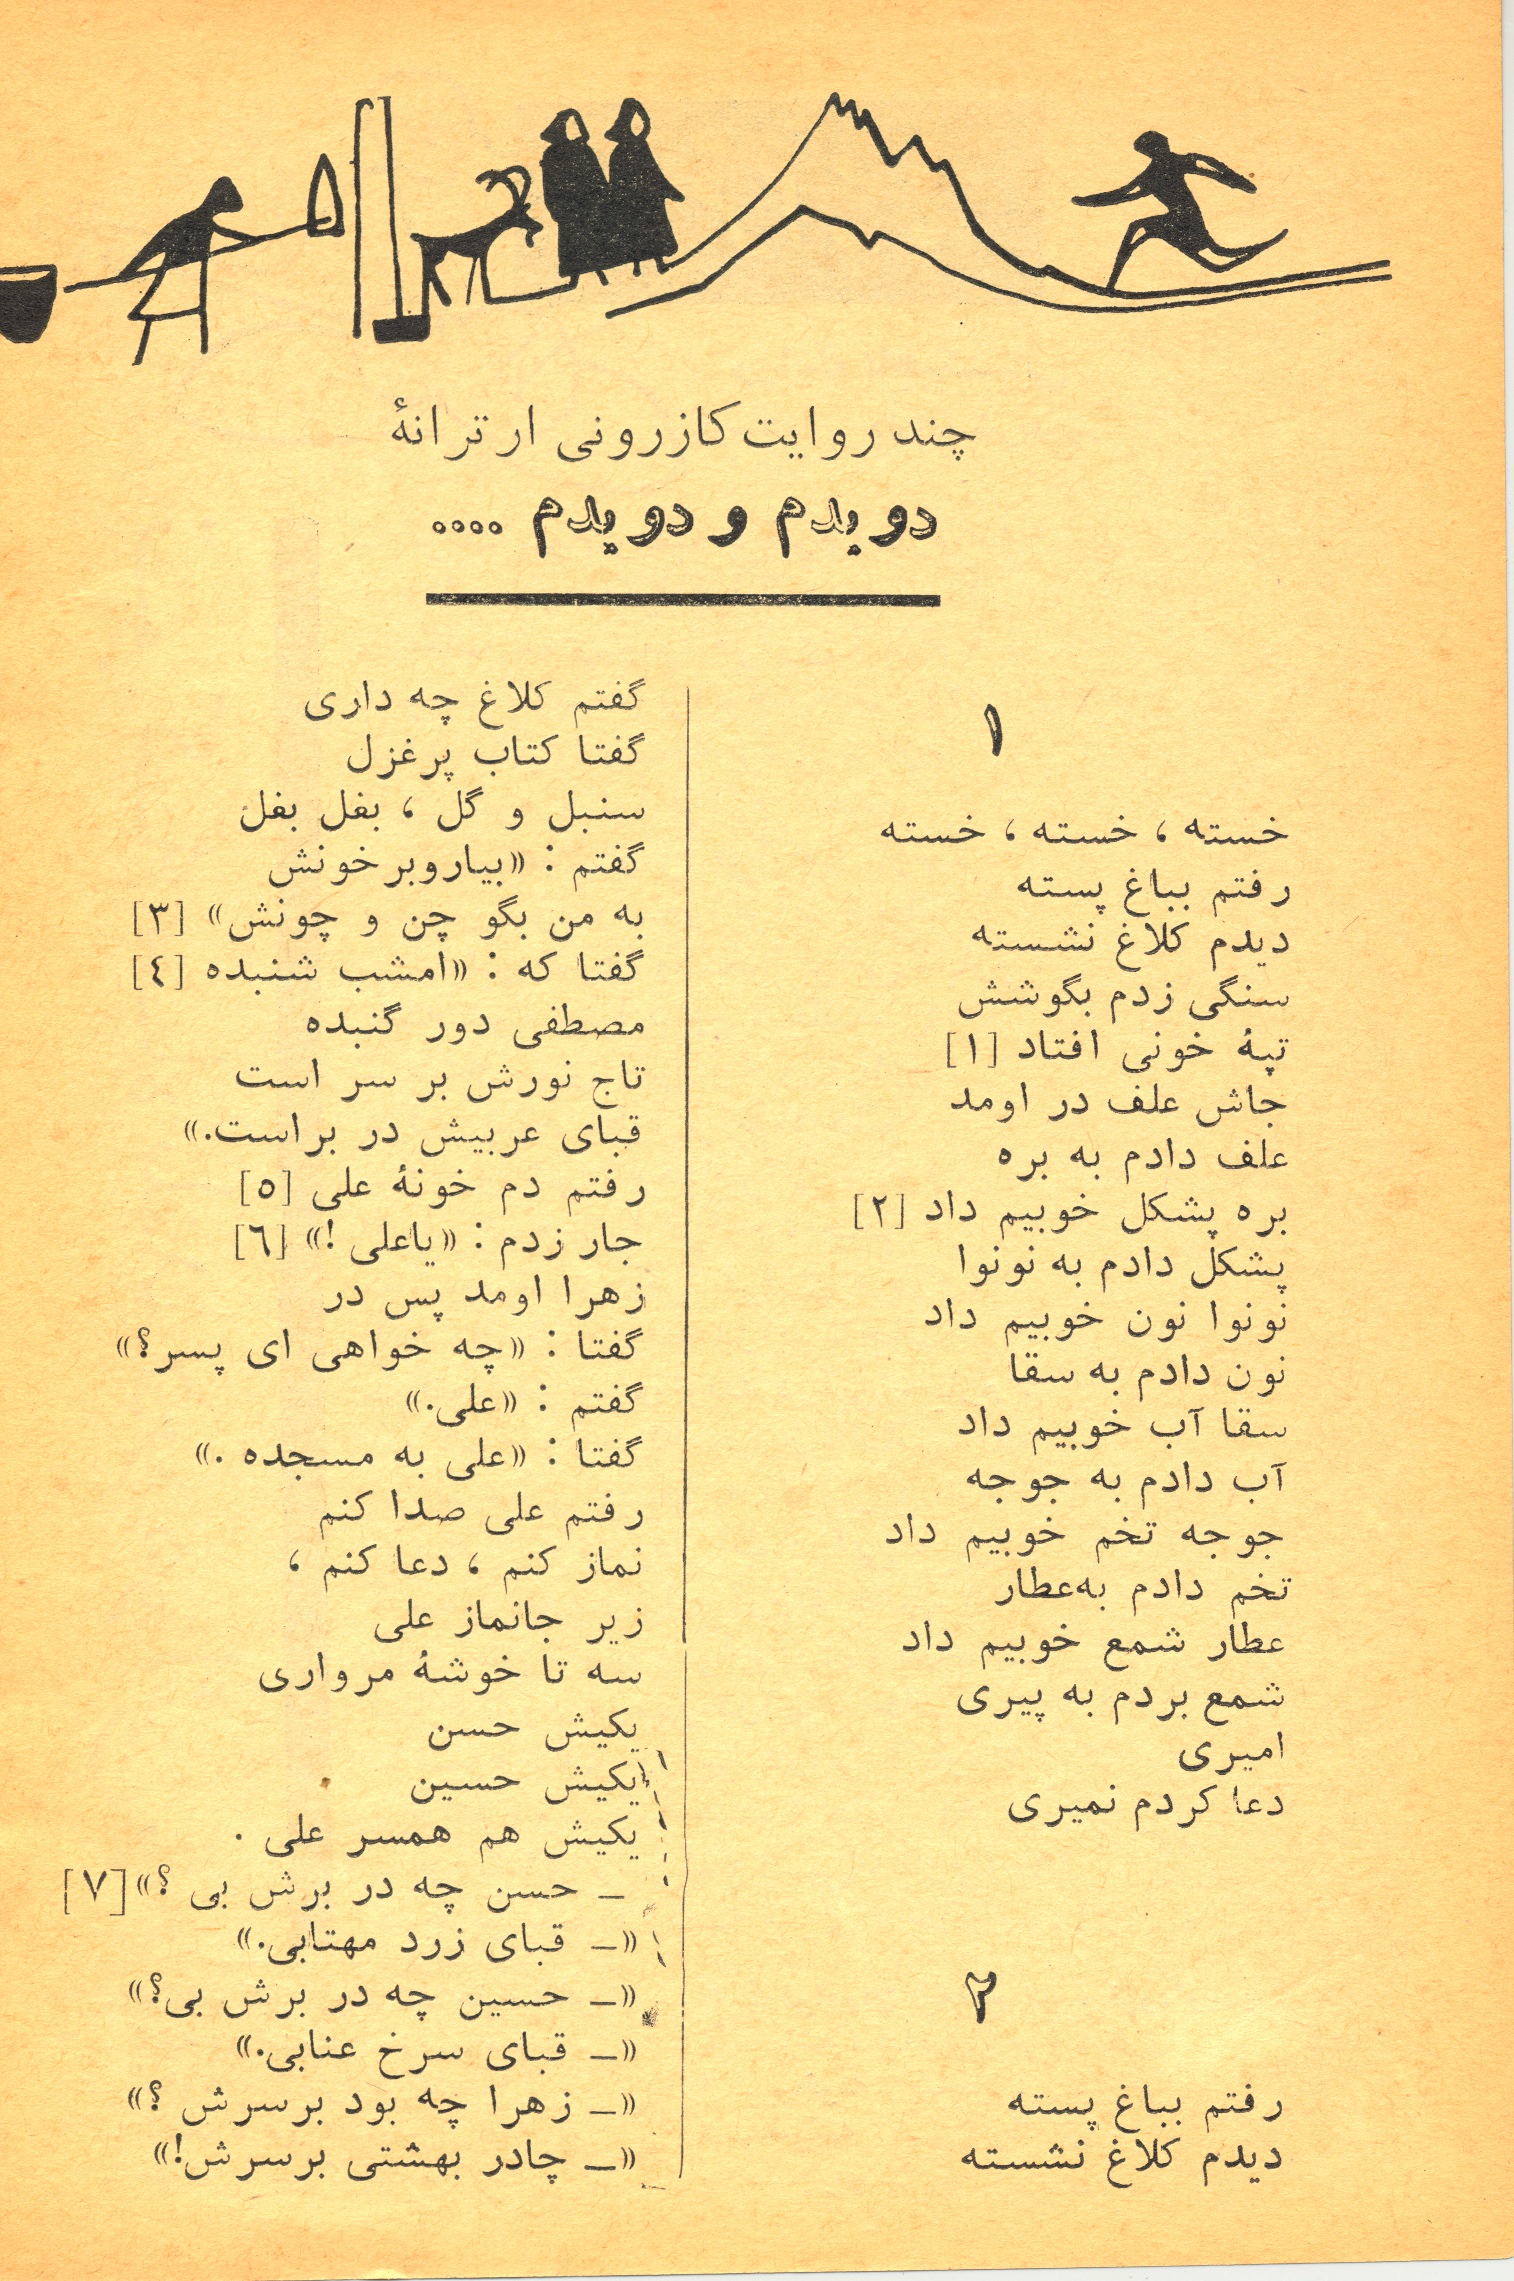 چند روایت کازرونی ار ترانهٔ
دویدم و دویدم ....
۱
خسته ، خسته ، خسته
رفتم بباغ پسته
دیدم کلاغ نشسته
سنگی زدم بگوشش
تپهٔ خونی افتاد [۱]
جاش علف در اومد
علف دادم به بره
بره پشکل خوبیم داد [۲]
پشکل دادم به نونوا
نونوا نون خوبیم داد
نون دادم به سقا
سقا آب خوبیم داد
آب دادم به جوجه
جوجه تخم خوبیم داد
تخم دادم به‌عطار
عطار شمع خوبیم داد
شمع بردم به پیری
امیری
دعا کردم نمیری
۲
رفتم بباغ پسته
دیدم کلاغ نشسته
گفتم کلاغ چه داری
گفتا کتاب پرغزل
سنبل و گل ، بغل بغل
گفتم : «بیاروبرخونش
به من بگو چن و چونش» [۳]
گفتا که : «امشب شنبده [٤]
مصطفی دور گنبده
تاج نورش بر سر است
قبای عربیش در براست.»
رفتم دم خونهٔ علی [٥]
جار زدم : «یاعلی !» [٦]
زهرا اومد پس در
گفتا : «چه خواهی ای پسر؟»
گفتم : «علی.»
گفتا : «علی به مسجده .»
رفتم علی صدا کنم
نماز کنم ، دعا کنم ،
زیر جانماز علی
سه تا خوشهٔ مرواری
یکیش حسن
یکیش حسین
یکیش هم همسر علی .
ـ حسن چه در برش بی ؟» [۷]
«ـ قبای زرد مهتابی.»
«ـ حسین چه در برش بی؟»
«ـ قبای سرخ عنابی.»
«ـ زهرا چه بود برسرش ؟»
«ـ چادر بهشتی برسرش!»